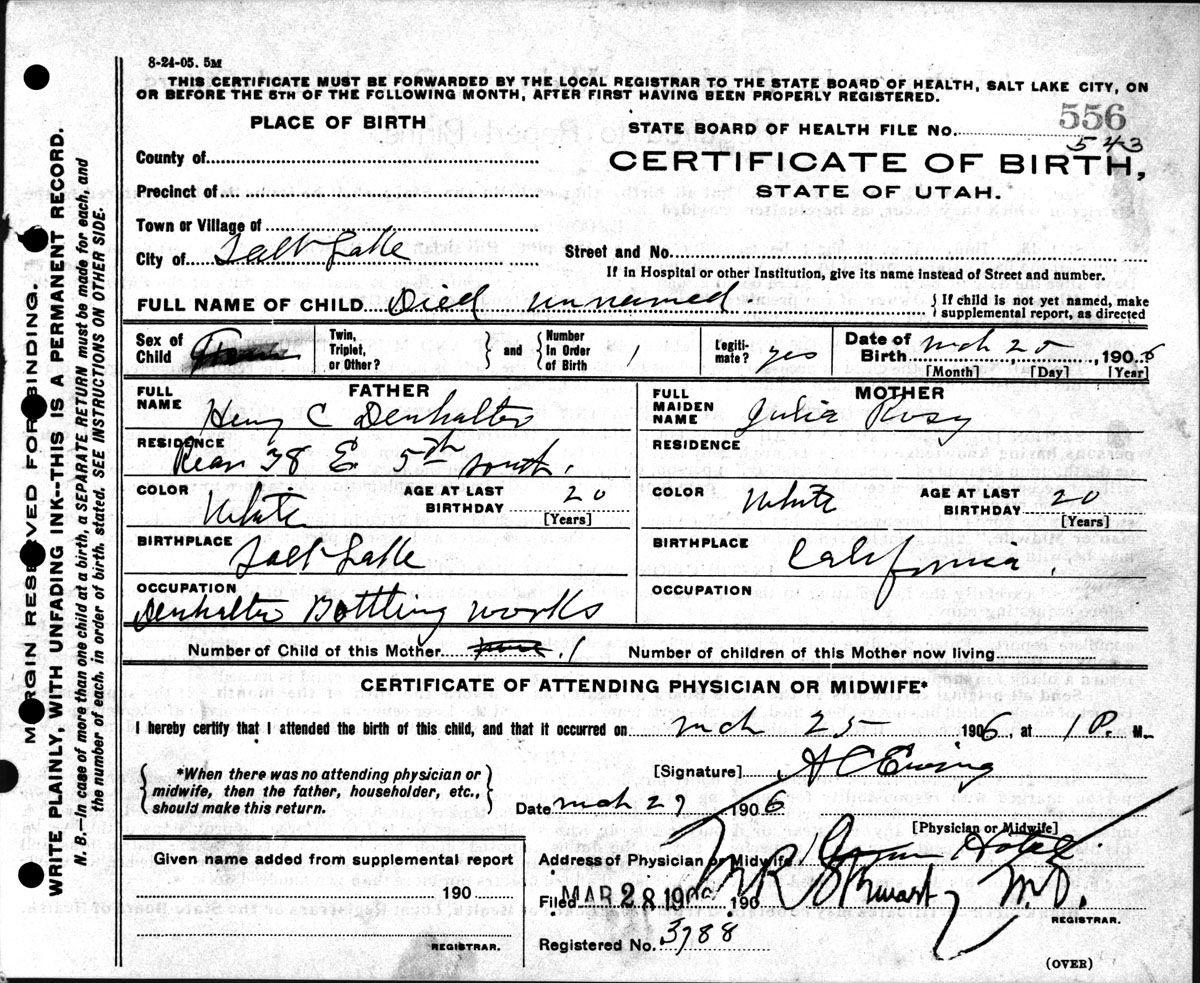 8-24-05. 5M
THIS CERTIFICATE MUST BE FORWARDED BY THE LOCAL REGISTRAR TO THE STATE BOARD OF HEALTH, SALT LAKE CITY, ON
OR BEFORE THE 5TH OF THE FOLLOWING MONTH, AFTER FIRST HAVING BEEN PROPERLY REGISTERED.
PLACE OF BIRTH
STATE BOARD OF HEALTH FILE No. 556
543
County of
CERTIFICATE OF BIRTH,
Precinct of
STATE OF UTAH.
Town or Village of
City of Salt Lake Street and No.
If in Hospital or other Institution, give its name instead of Street and number.
FULL NAME OF CHILD Died unnamed { If child is not yet named, make supplemental report, as directed
Sex of Child
Twin, Triplet, or Other? } and { Number In Order of Birth 1
Legiti- mate? yes
Date of Birth Mch 25 1906
[Month] [Day] [Year]
FATHER
FULL NAME Henry C Denhalter
RESIDENCE Rear 38 E 5th South.
COLOR White AGE AT LAST BIRTHDAY 20
[Years]
BIRTHPLACE Salt Lake
OCCUPATION
Denhalter Bottling works
MOTHER
FULL MAIDEN NAME Julia Rosy
RESIDENCE
COLOR White AGE AT LAST BIRTHDAY 20
[Years]
BIRTHPLACE California.
OCCUPATION
Number of Child of this Mother 1 Number of children of this Mother now living
CERTIFICATE OF ATTENDING PHYSICIAN OR MIDWIFE*
I hereby certify that I attended the birth of this child, and that it occurred on Mch 25 1906, at 1 P. M.
{ *When there was no attending physician or midwife, then the father, householder, etc., should make this return. }
[Signature] A C Ewing
Date Mch 27 1906
[Physician or Midwife]
Given name added from supplemental report
190
REGISTRAR.
Address of Physician or Midwife Hotel
Filed MAR 28 190 Stewart M.D.
REGISTRAR.
Registered No. 3788
(OVER)
MARGIN RESERVED FOR BINDING.
WRITE PLAINLY, WITH UNFADING INK--THIS IS A PERMANENT RECORD.
N. B.—In case of more than one child at a birth, a SEPARATE RETURN must be made for each, and
the number of each, in order of birth, stated. SEE INSTRUCTIONS ON OTHER SIDE.